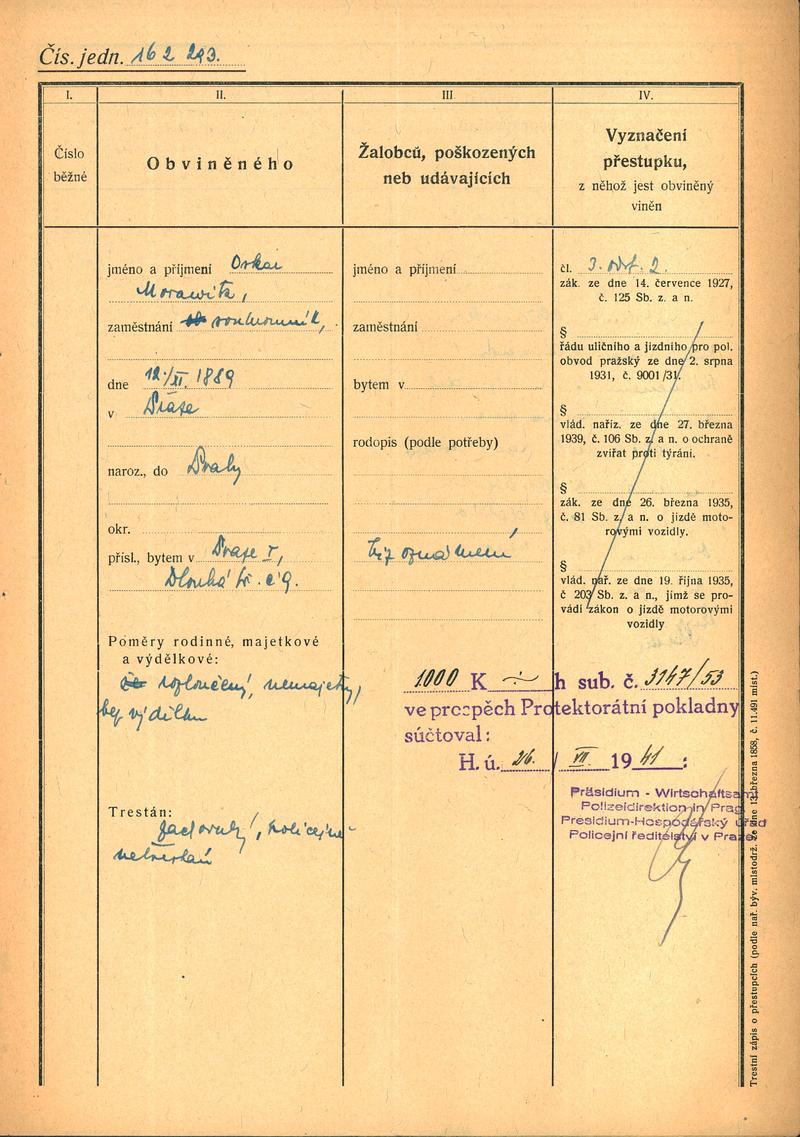 Čís. jedn. 162 293.
I.
II.
III
IV.
Číslo
běžné
Obviněného
Žalobců, poškozených
neb udávajících
Vyznačení
přestupku,
z něhož jest obviněný
viněn
jméno a příjmení Oskar
Morawitz,
zaměstnání soukromník,
dne 12./XI. 1889
v Praze
naroz., do Prahy
okr.
přísl., bytem v Praze I,
Dlouhá tř. č 9.
Poměry rodinné, majetkové
a výdělkové:
rozloučený, nemajetný,
bez výdělku
Trestán:
zachovalý, policejně
netrestán
jméno a příjmení
zaměstnání
bytem v
rodopis (podle potřeby)
Viz oznámení
čl. 3. odst. 2.
zák. ze dne 14. července 1927,
č. 125 Sb. z. a n.
§
řádu uličního a jízdního pro pol.
obvod pražský ze dne 2. srpna
1931, č. 9001/31.
§
vlád. naříz. ze dne 27. března
1939, č. 106 Sb. z. a n. o ochraně
zvířat proti týrání.
§
zák. ze dne 26. března 1935,
č. 81 Sb. z. a n. o jízdě moto-
rovými vozidly.
§
vlád. nař. ze dne 19. října 1935,
č 203 Sb. z. a n., jímž se pro-
vádí zákon o jízdě motorovými
vozidly
1000 K h sub. č. 3147/53
ve prospěch Protektorátní pokladny
súčtoval:
H. ú. 26. / VII. 1941 :
Präsidium - Wirtschaftsamt
Polizeidirektion in Prag
Presidium-Hospodářský úřad
Policejní ředitelství v Praze
Trestní zápis o přestupcích (podle nař. býv. místodrž. ze dne 13. března 1858, č. 11.491 míst.)